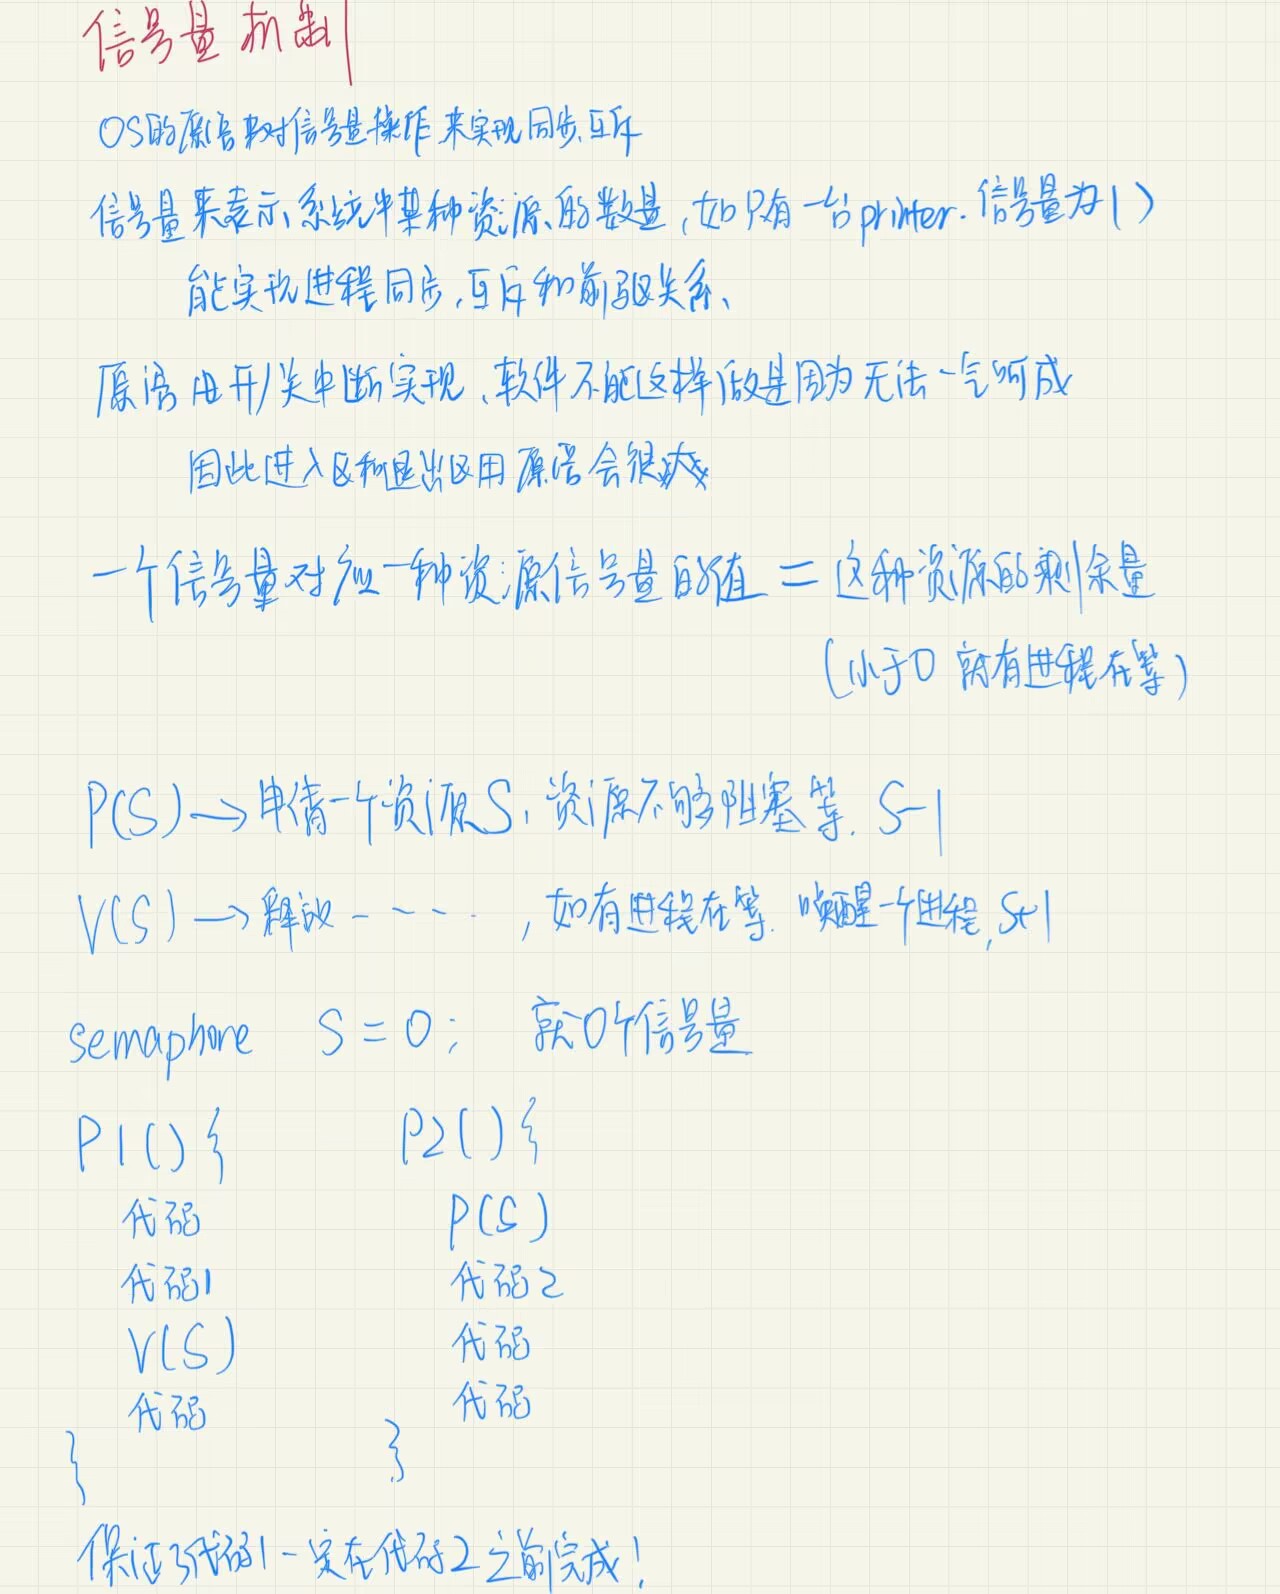 信号量机制
OS的原语来对信号量操作来实现同步、互斥
信号量来表示系统中某种资源的数量,如只有一台printer.信号量为1)
能实现进程同步,互斥和前驱关系、
原语由开/关中断实现、软件不能这样做是因为无法一气呵成
因此进入区和退出区用原语会很
一个信号量对应一种资源信号量的值 = 这种资源的剩余量
(小于0 就有进程在等)
P(S) → 申请一个资源S, 资源不够阻塞等. S-1
V(S) → 释放 - - - - ,如有进程在等. 唤醒一个进程,S+1
semaphore S = 0; 就0个信号量
P1(){ P2(){
代码 P(S)
代码1 代码2
V(S) 代码
代码 代码
} }
保证了代码1一定在代码2之前完成!